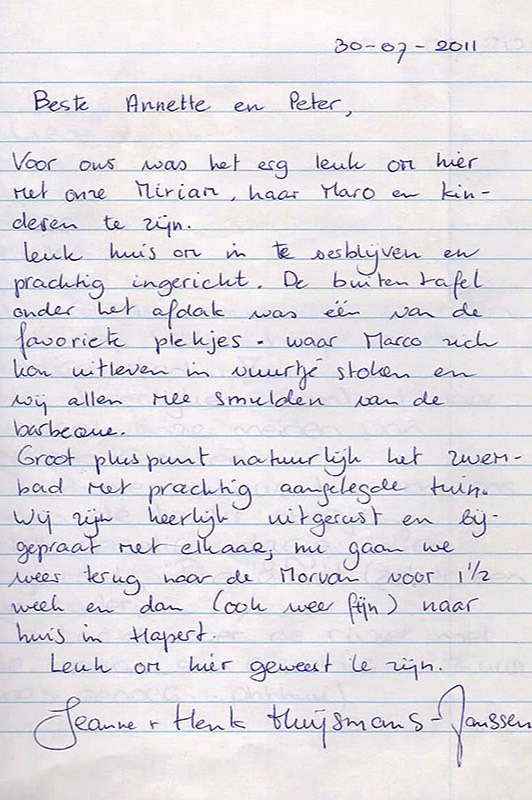 30-07-2011
Beste Annette en Peter,
Voor ons was het erg leuk om hier
met onze Mirian, haar Marco en kin-
deren te zijn.
Leuk huis om in te verblijven en
prachtig ingericht. De buitentafel
onder het afdak was één van de
favoriete plekjes - waar Marco zich
kon uitleven in vuurtje stoken en
wij allen mee smulden van de
barbecue.
Groot pluspunt natuurlijk het zwem-
bad met prachtig aangelegde tuin.
Wij zijn heerlijk uitgerust en bij-
gepraat met elkaar, nu gaan we
weer terug naar de Morvan voor 1½
week en dan (ook weer fijn) naar
huis in Hapert.
Leuk om hier geweest te zijn.
Jeanne + Henk Huijsmans-Janssen